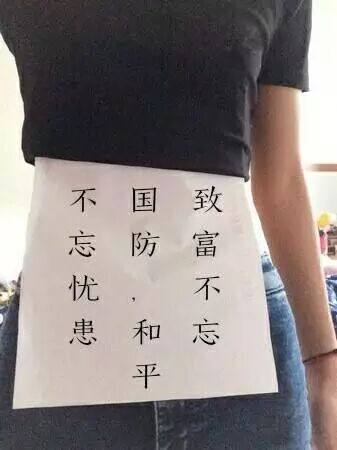 致富不忘
国防,和平
不忘忧患